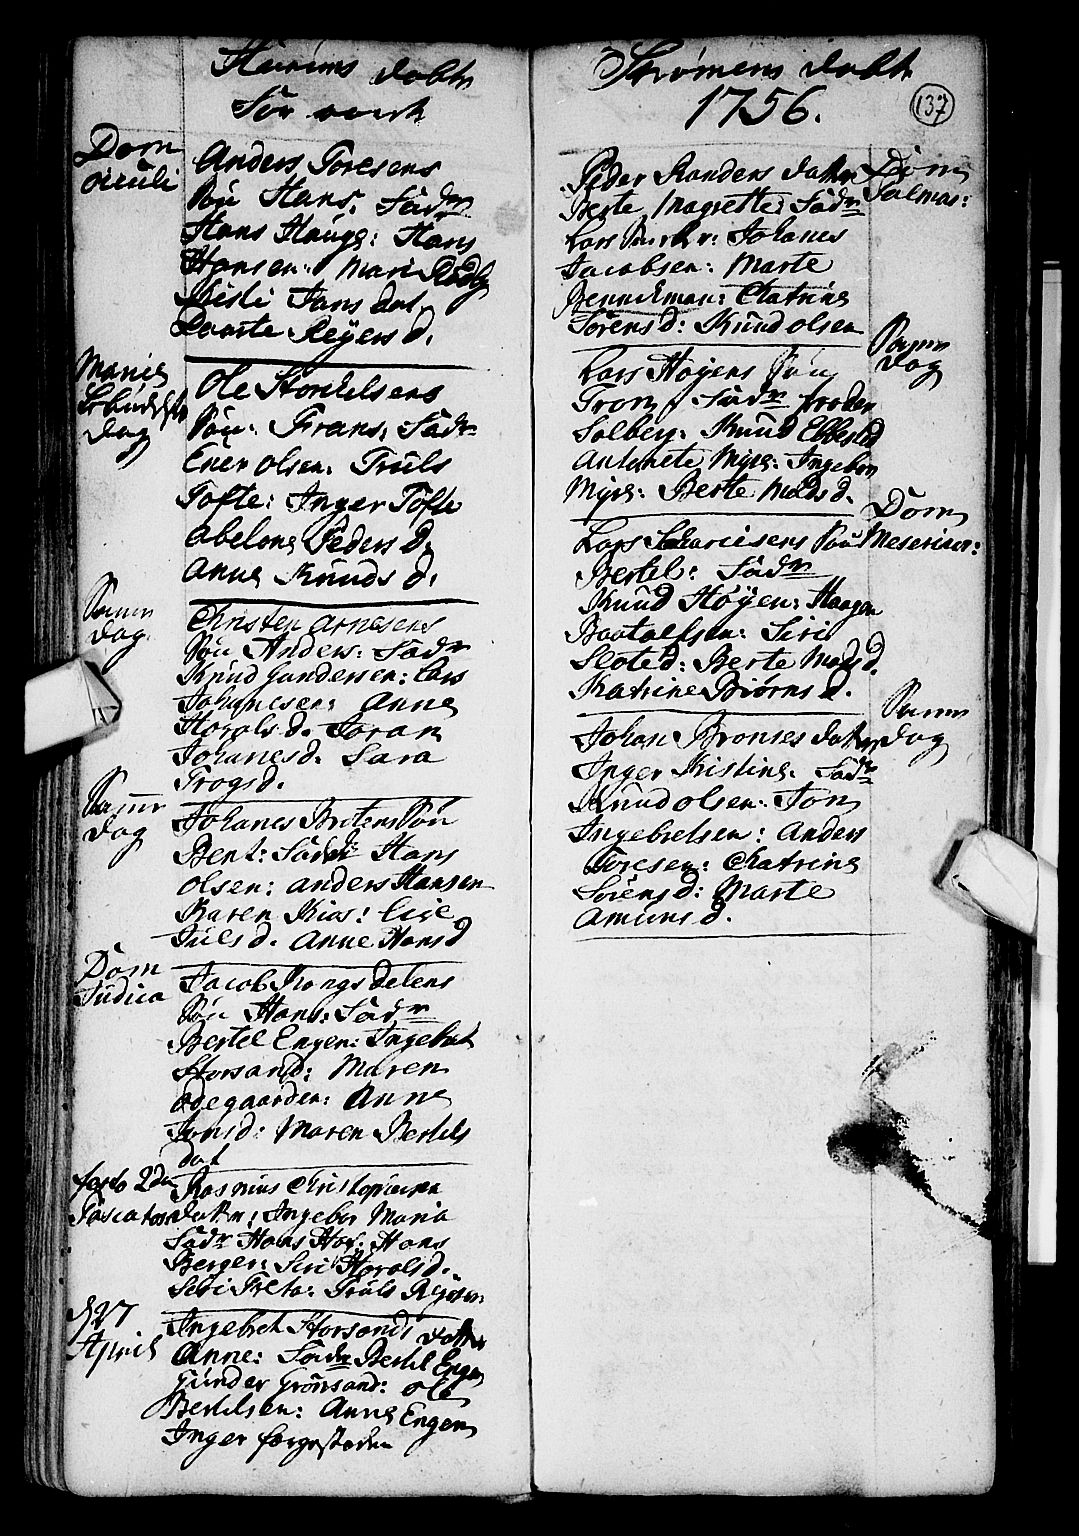 Hurums døbte
Dom
oculi
Anders Toresens
Søn Hans. Fadr
Hans Hauge: Hans
Hansen: Mari Rødby
Kisti Jans dat
Dorte Reyers d.
Mariæ
dag
Ole Stordelsens
Søn. Frans. Fadr
Ener olsen. Truls
Tofte: Inger Tofte
Abelone Peders d.
Anne Knuds d.
Samm
dag.
Christen Arnesens
Søn Anders. Fadr
Knud Gundersen: Lars
Johannesen: Anne
Horols d. Joran
Johanes d. Sara
Trogs d.
Samm
dag
Johanes Bratens Søn
Bent: Fadr Hans
olsen: anders Hansen
Karen Kios: Lise
Juls d. Anne Hans d
Dom
Judica
Jacob Kongsdelens
Søn Hans: Fadr
Bertel Engen: Ingebret
Storsand: Maren
ødegaarden: Anne
Jons d: Maren Bertels
dat
festo 2da
Pascatos
Rasmus Christophersen
datter: Ingebor Maria
Fadr Hans Hof: Hans
Berger: Siri Horols d.
Siri Treta: Truls Reyersen
d 27
April
Ingebret Storsands datter
Anne: Fadr Bertel Engen
Gunder Grönsand: ole
Bertelsen: Anne Engen
Inger
Strømens døbte
1756.
137
Dom
Palmar:
Peder Randens datter
Berte Magrette: Fadr
Lars: Johanes
Jacobsen: Marte
Bennekman: Chatrine
Sørens d: Knud olsen
Samm
dag
Lars Høyens Søn
Tron, Fadr Peder
Solberg: Knud Ebbestad
Antonete Myre: Ingebor
Myre: Berte Mads d.
Dom
Mesericor:
Lars Sachariesens Søn
Bertel: Fadr
Knud Høyen: Haagen
Baatolfsen: Siri
Slote d: Berte Mads d.
Katrine Biørns d.
Samm
dag
Johan Bronses datter
Inger Kistine. Fadr
Knud olsen: Jon
Ingebretsen: Anders
Toresen: Chatrine
Sørens d: Marte
Amuns d.